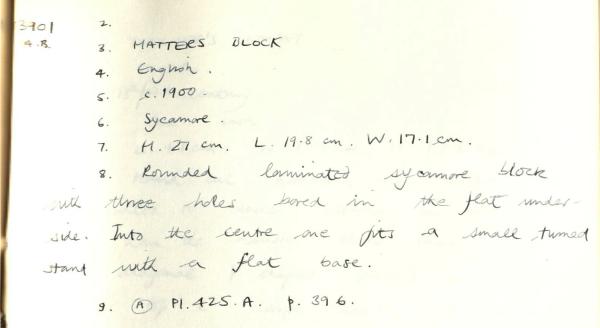 3901 2.
A.B. 3. MATTERS BLOCK
4. English.
5. c.1900.
6. Sycamore.
7. H. 27 cm. L. 19.8 cm. W. 17.1 cm.
8. Rounded laminated sycamore block
with three holes bored in the flat under-
side. Into the centre one fits a small turned
stand with a flat base.
9. A Pl. 425. A. p. 396.